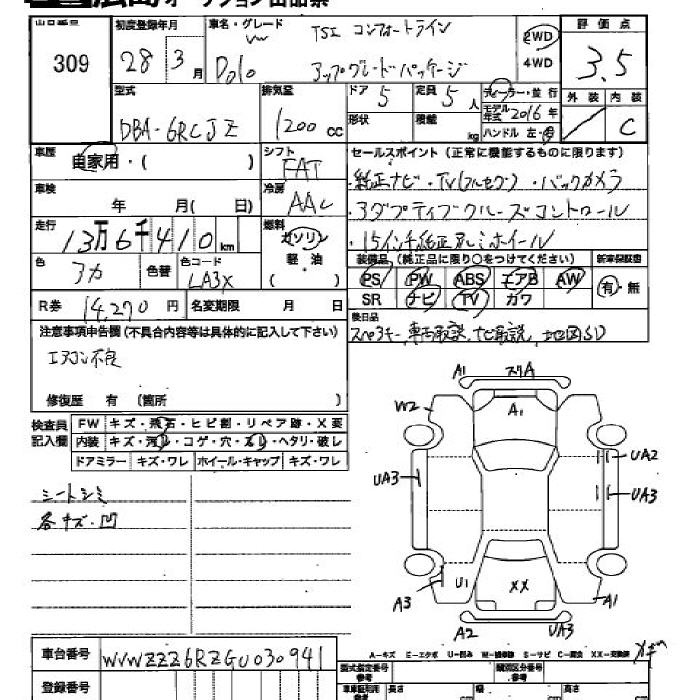 広島オークション出品票
出品番号 309
初度登録年月 28年 3月
車名・グレード VW Polo TSI コンフォートライン
アップグレードパッケージ
2WD
4WD
評価点 3.5
外装 内装 C
型式 DBA-6RCJZ
排気量 1200 cc
ドア 5 定員 5人
形状 積載 kg
ディーラー・並行
モデル年式 2016年
ハンドル 左・右
車歴 自家用・( )
シフト FAT
セールスポイント(正常に機能するものに限ります)
・純正ナビ・TV(フルセグ)・バックカメラ
・アダプティブクルーズコントロール
・15インチ純正アルミホイール
車検 年 月( 日)
冷房 AAC
走行 13万6千410km
燃料 ガソリン
軽・油
( )
色 アカ 色替 色コード LA3X
装備品(純正品に限り○をつけてください) 新車保証書
PS PW ABS エアB AW 有・無
SR ナビ TV カワ
R券 14,270円 名変期限 月 日
後日品
スペアキー、車両取説、ナビ取説、地図SD
注意事項申告欄(不具合内容等は具体的に記入して下さい)
エアコン不良
修復歴 有 (箇所 )
検査員記入欄
FW キズ・飛石・ヒビ割・リペア跡・X要
内装 キズ・汚レ・コゲ・穴・スレ・ヘタリ・破レ
ドアミラー キズ・ワレ ホイール・キャップ キズ・ワレ
シートシミ
各キズ・凹
A1 スリA
W2 A1
UA3 UA2
UA3
A3 U1 XX A1
A2 UA3
A-キズ E-エクボ U-凹み W-補修跡 S-サビ C-腐食 XX-交換済
車台番号 WVWZZZ6RZGU030941
登録番号
型式指定番号 参考
類別区分番号 参考
車車証利用 参考 長さ 幅 高さ